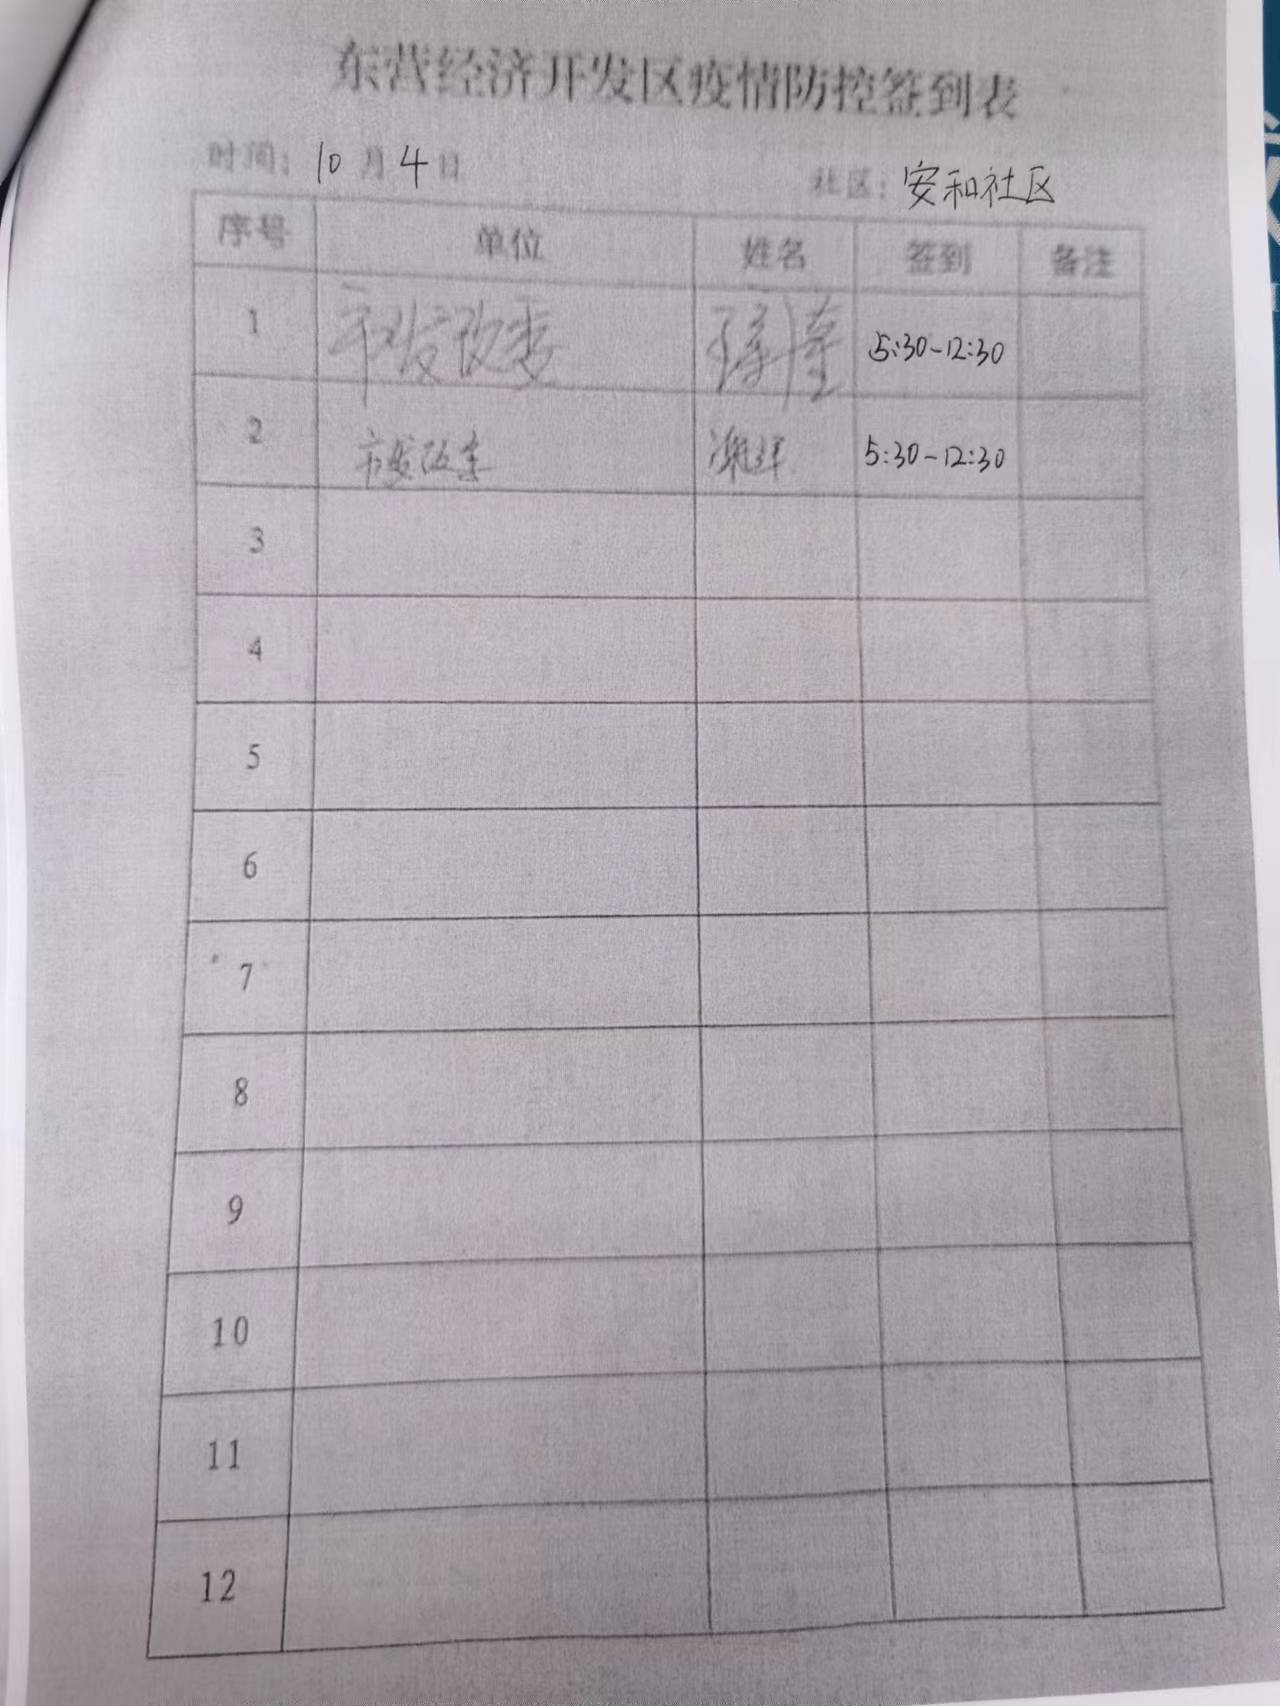 东营经济开发区疫情防控签到表
时间: 10月4日 社区: 安和社区
序号 单位 姓名 签到 备注
1 市发改委 5:30-12:30
2 市发改委 5:30-12:30
3
4
5
6
7
8
9
10
11
12